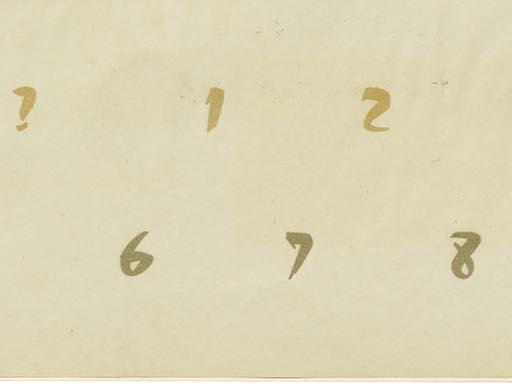 ? 1 2
6 7 8